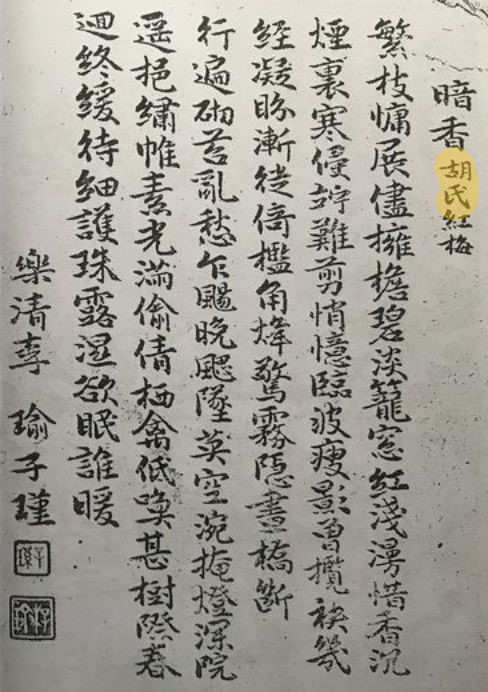 暗香 胡氏紅梅
繁枝慵展儘擁檐碧淡籠窓紅淺惜香沉
煙裏寒侵竚難剪悄憶臨波瘦影曽攬袂幾
經凝盼漸徙倚檻角烽驚霧隱畫橋斷
行遍砌苔亂愁乍颺晚颸墜英空涴掩燈深院
遥挹繡帷素光滿偷倩栖禽低喚甚樹隂春
迴終緩待細護珠露濕欲眠誰暖
樂清李 瑜子瑾